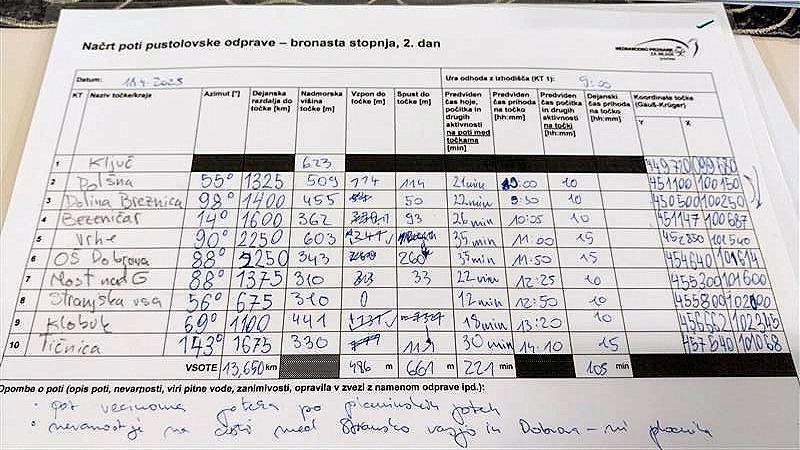 Načrt poti pustolovske odprave – bronasta stopnja, 2. dan
MEDNARODNO PRIZNANJE
ZA MLADE
Datum: Ura odhoda z izhodišča (KT 1): 9:00
KT Naziv točke/kraja Azimut [°] Dejanska razdalja do točke [km] Nadmorska višina točke [m] Vzpon do točke [m] Spust do točke [m] Predviden čas hoje, počitka in drugih aktivnosti na poti med točkama [min] Predviden čas prihoda na točko [hh:mm] Predviden čas počitka in drugih aktivnosti na točki [min] Dejanski čas prihoda na točko [hh:mm] Koordinate točke (Gauß-Krüger) Y X
1 Ključ 623
2 55° 1325 509 114 21min 10
3 Dolina Breznica 98° 1400 455 50 22min 10 450500 100250
4 Bezeničar 14° 1600 362 93 26 min 10:05 10 451147 100687
5 Vrhe 90° 2250 603 35 min 11:00 15 452850 101540
6 OŠ Dobrova 88° 2250 343 260 35min 11:50 15 454640 101614
7 Most nad G 88° 1375 310 33 22 min 12:25 10 455300 101600
8 Stranjska vsa 56° 675 310 0 12 min 12:50 10 455800
9 Klobuk 69° 1100 441 18min 13:20 10
10 Tičnica 143° 1675 330 30 min 14:10 15
VSOTE 13,650 km 486 m 661 m 221 min 105 min
Opombe o poti (opis poti, nevarnosti, viri pitne vode, zanimivosti, opravila v zvezi z namenom odprave ipd.):
· pot večinoma poteka po planinskih poteh
· nevarnost je na cesti med Stransko vasjo in Dobravo – ni pločnika